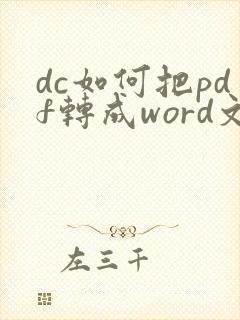 dc如何把pd
f轉成word文
左三千